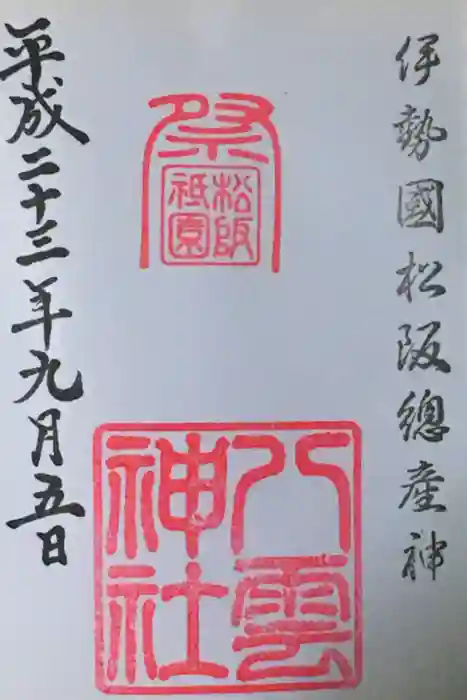 伊勢國松阪總産神
祭
松阪
祗園
八雲
神社
平成二十三年九月五日